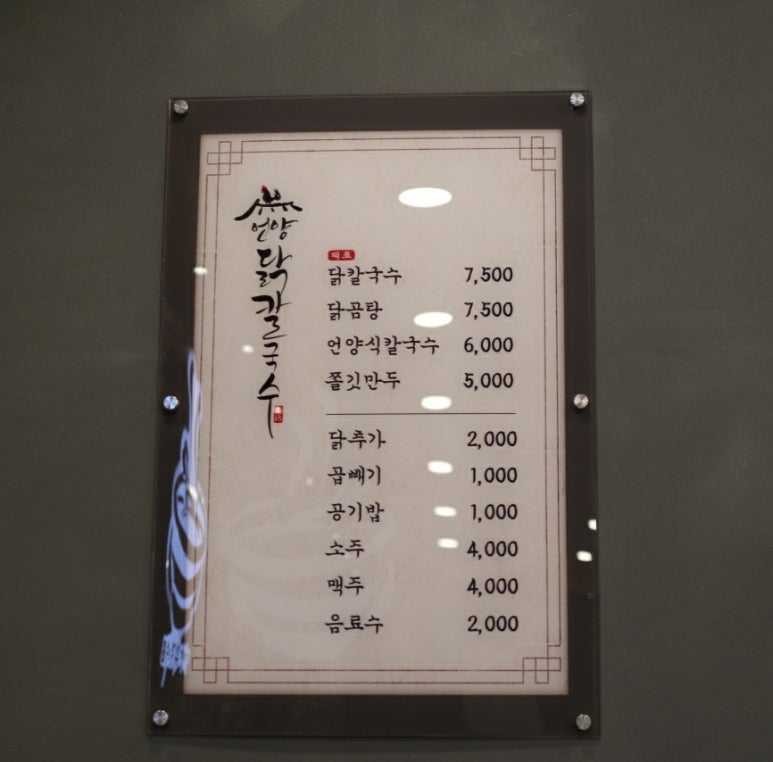 언양
닭칼국수
대표
닭칼국수 7,500
닭곰탕 7,500
언양식칼국수 6,000
쫄깃만두 5,000
닭추가 2,000
곱빼기 1,000
공기밥 1,000
소주 4,000
맥주 4,000
음료수 2,000